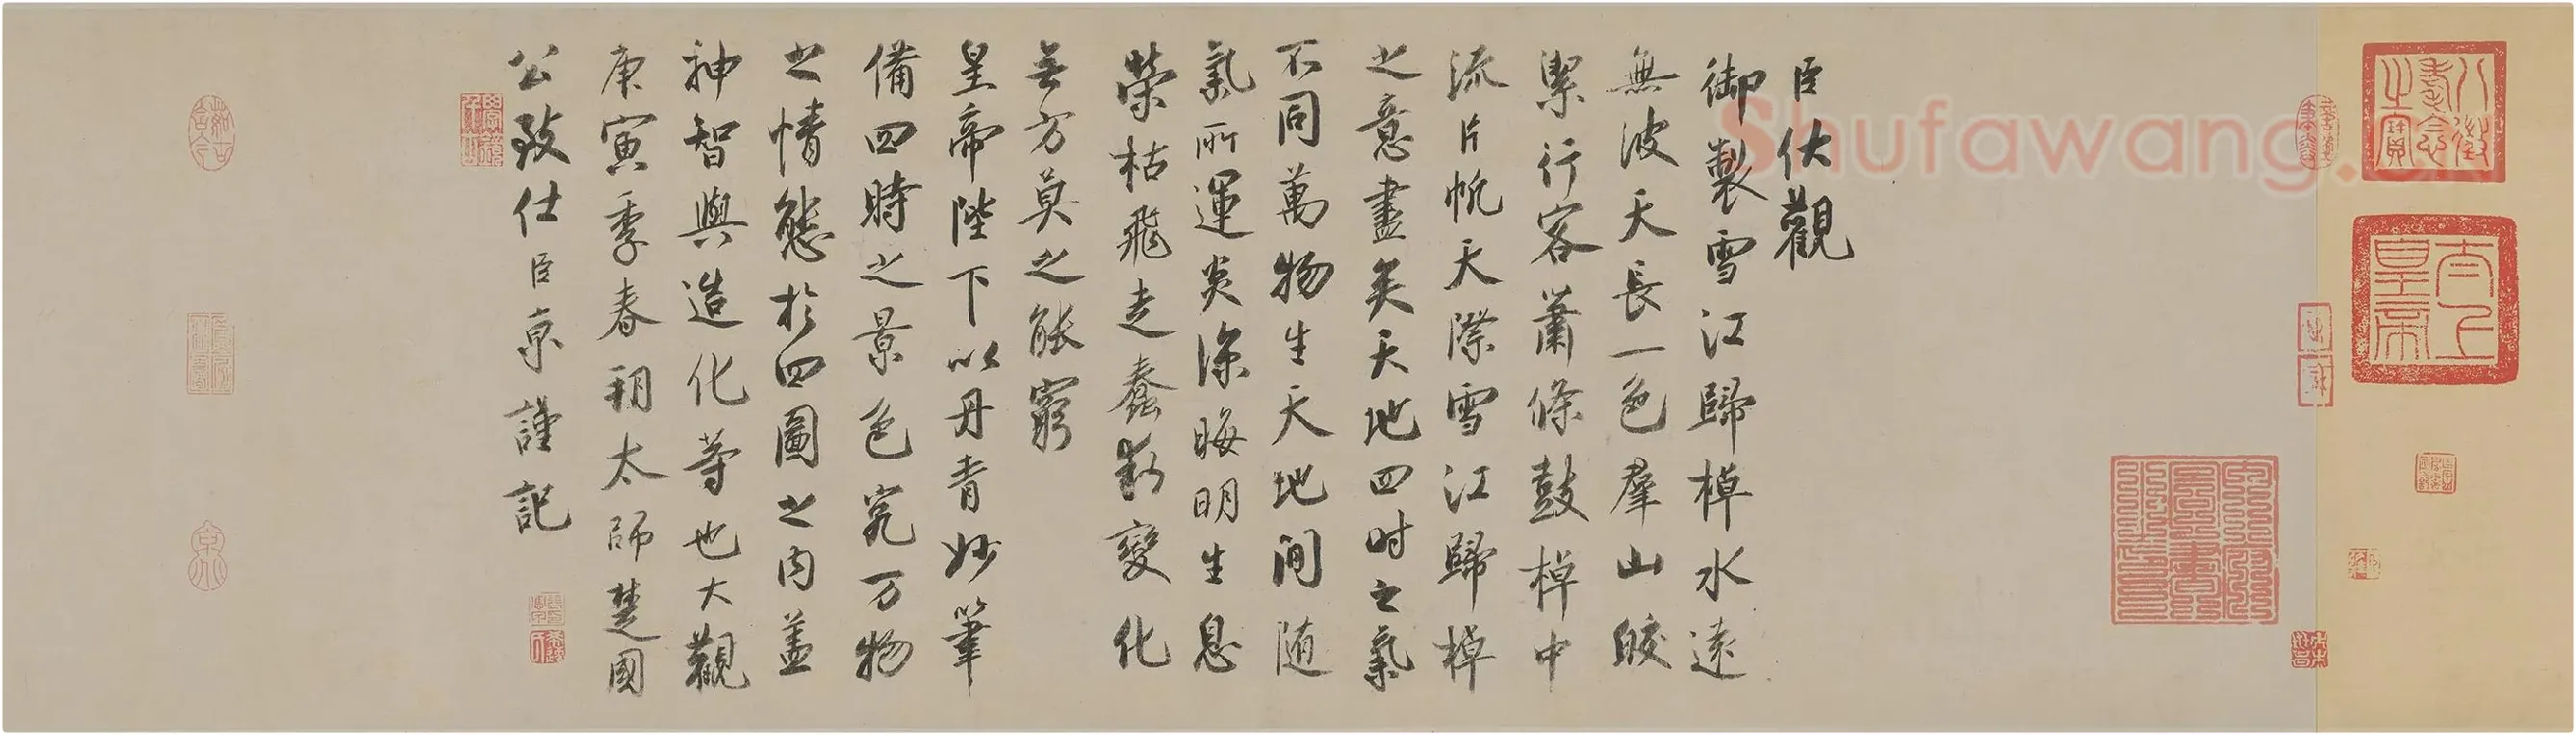 臣伏觀
御製雪江歸棹水遠
無波天長一色群山皎
潔行客蕭條鼓棹中
流片帆天際雪江歸棹
之意盡矣天地四时之氣
不同萬物生天地間随
氣所運炎涼晦明生息
榮枯飛走蠢動變化
無方莫之能窮
皇帝陛下以丹青妙筆
備四時之景色究万物
之情態於四圖之内盖
神智與造化等也大觀
庚寅季春朔太師楚國
公致仕臣京謹記
八徵耄念之寳
太上皇帝
Shufawang.cn